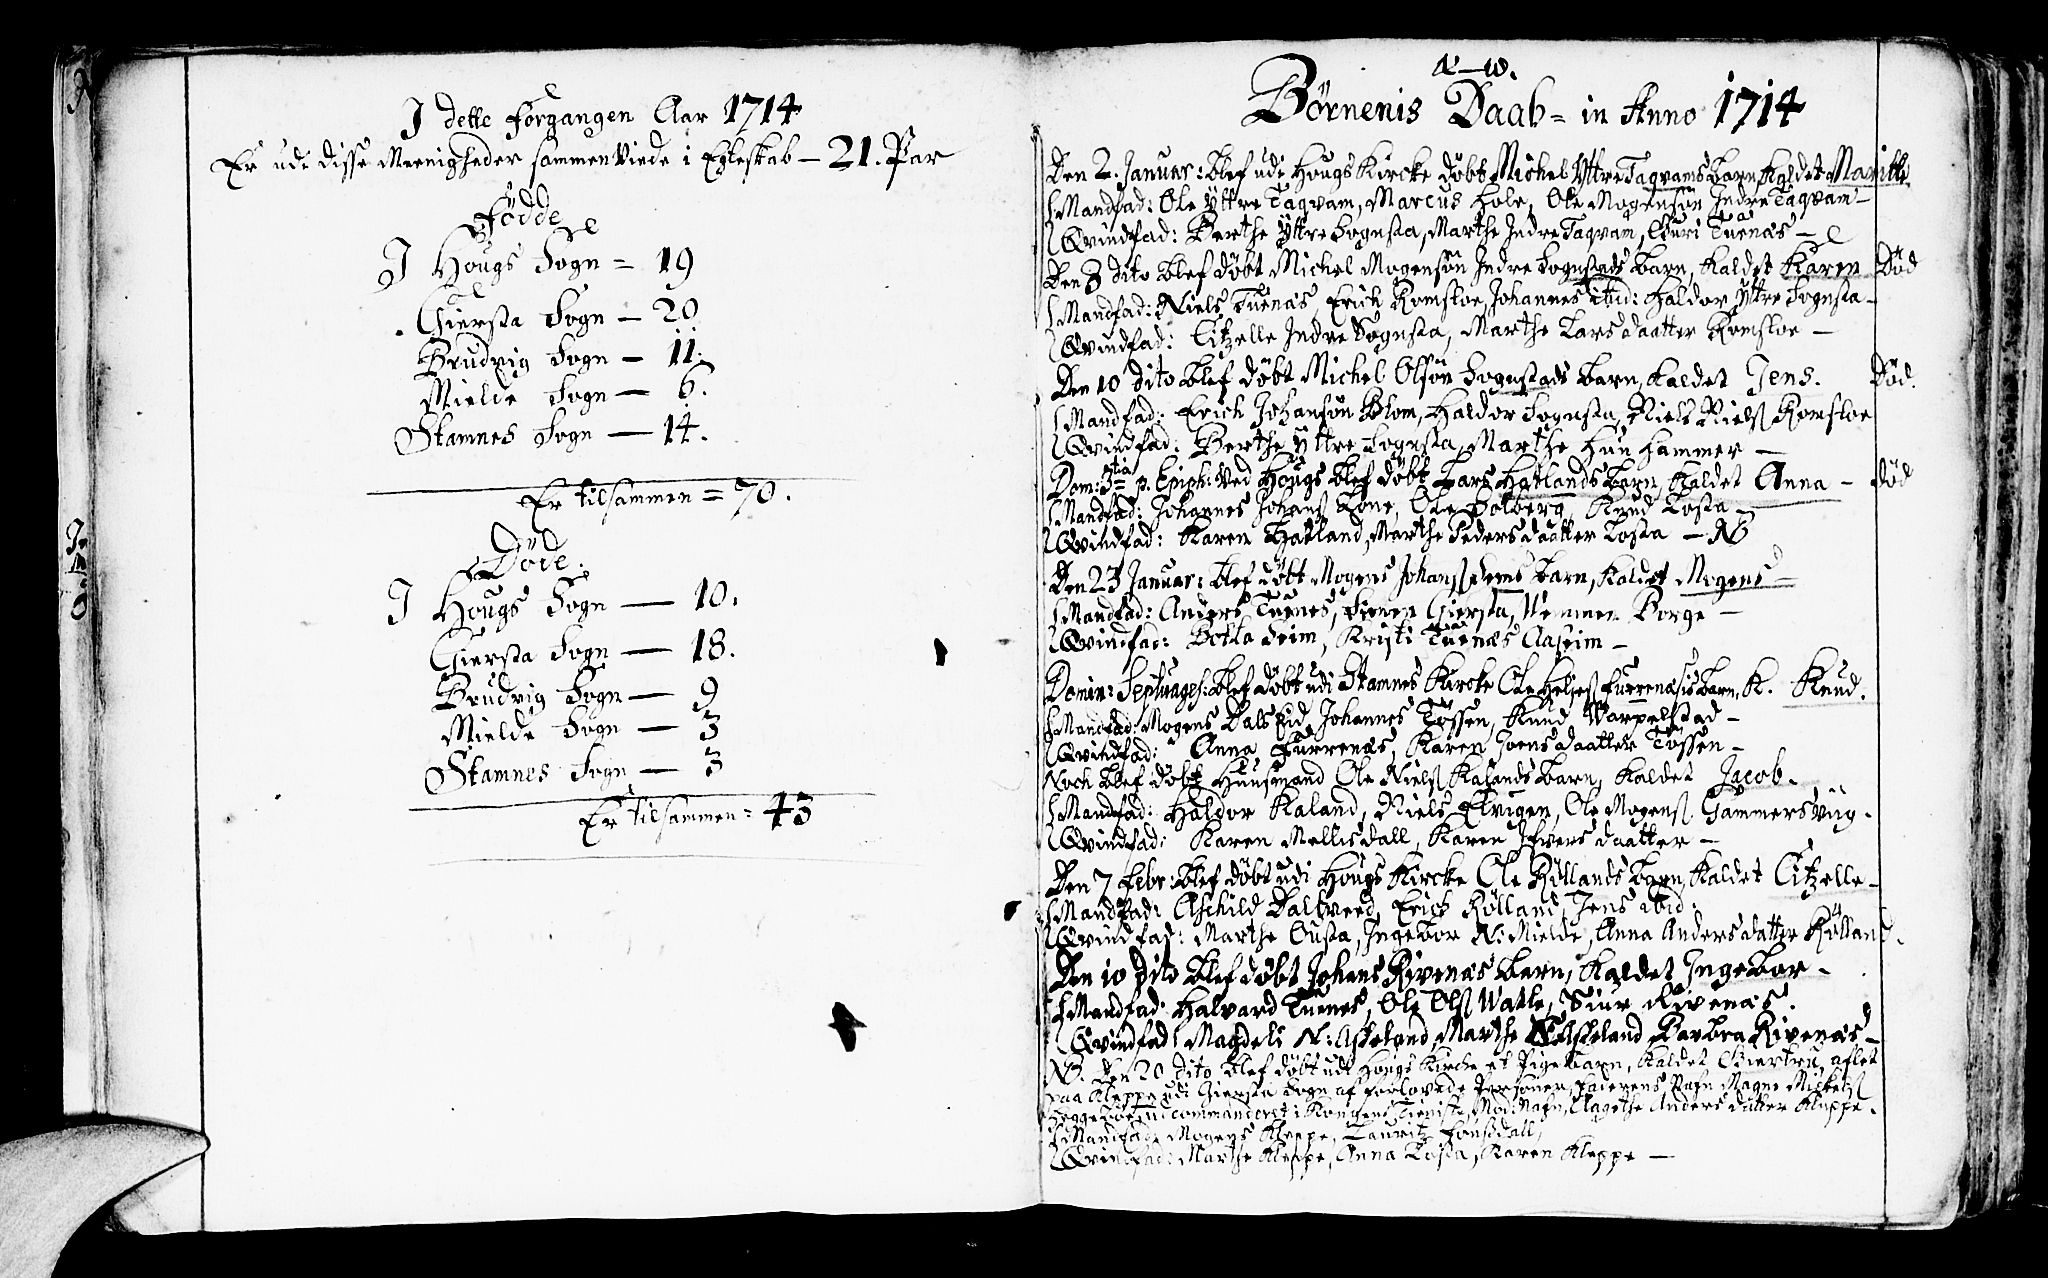 I dette forgangen Aar 1714
Er udi disse Meenigheder sammenViede i Egteskab – 21. Par
Födde
I Hougs Sogn = 19
Giersta Sogn – 20
Brudvig Sogn – 11.
Mielde Sogn – 6.
Stamnes Sogn – 14.
Er tilsammen = 70.
Döde.
I Hougs Sogn – 10.
Giersta Sogn – 18.
Brudvig Sogn – 9
Mielde Sogn – 3
Stamnes Sogn – 3
Er tilsammen = 43
Börnenis Daab = in Anno 1714
Den 2. Januar: blef udi Hougs Kircke döbt Michel Yttre Taqvams Barn, kaldet Maritte
Mandfad: Ole Yttre Taqvam, Marcus Hole, Ole Mogensön Indre Taqvam –
Qvindfad: Berthe Yttre Sognsta, Marthe Indre Taqvam, Guri Tuenæs –
Den 8 dito blef döbt Michel Mogensön Indre Sognstads Barn, kaldet Karen Död
Mandfad: Niels Tuenæs, Erich Romsloe, Johannes ibid: Haldor Yttre Sognsta –
Qvindfad: Citzelle Indre Sognsta, Marthe Larsdaatter Romsloe –
Den 10 dito blef döbt Michel Olsön Sognstads Barn, kaldet Jens. Död.
Mandfad: Erich Johansön Blom, Haldor Sognsta, Niels Niels Romsloe
Qvindfad: Berthe Yttre Sognsta, Marthe Hun hammer –
Dom: 3tia p. Epiph: Ved Hougs blef döbt Lars Hatlands Barn, kaldet Anna – död
Mandfad: Johannes Johans Lone, Ole Solberg, Knud Losta –
Qvindfad: Karen Hatland, Marthe Pedersdaatter Losta – NB
Den 23 Januar: blef döbt Mogens Johans deims Barn, kaldet Mogens –
Mandfad: Anders Tuenes, Simen Giersta, Wemmer Borge –
Qvindfad: Botla deim, Kristi Tuenæs Aaseim –
Domin: Septuages: blef döbt udi Stamnes Kircke Ole Helies Furrenæsis Barn, K. Knud.
Mandfad: Mogens Dals Eid, Johannes Tössen, Knud Warpelstad –
Qvindfad: Anna Furrenæs, Karen Joensdaatter Tössen –
Noch blef döbt Huusmand Ole Niels Kalands Barn, kaldet Jacob.
Mandfad: Haldor Kaland, Niels Elvigen, Ole Mogens Gammersviig.
Qvindfad: Karen Mellisdall, Karen Ifversdaatter –
Den 7 Febr: blef döbt udi Hougs Kircke Ole Röllands Barn, kaldet Citzelle –
Mandfad: Aschild Dalsveed, Erich Rölland, Jens ibid:
Qvindfad: Marthe Gusta, Ingebor N: Mielde, Anna Andersdatter Rölland.
Den 10 Dito blef döbt Johans Rivenæs Barn, kaldet Ingebor –
Mandfad: Halvard Tuenes, Ole Ols Watle, Siur Rivenæs.
Qvindfad: Magdeli N: Askeland, Marthe Askeland, Barbra Rivenæs –
NB. Den 20 dito blef döbt udi Hougs Kircke et Pigebarn, kaldet Giertru, aflet
paa Kleppe udi Giersta Sogn af forlovede Persohner, Faderens Nafn Magne Michels
commanderet i Kongens Tieniste, Mod: Nafn, Aagethe Andersdatter Kleppe.
Mandfad: Mogens Kleppe, Lauritz Fonsdall,
Qvindfad: Marthe Kleppe, Anna Losta, Karen Kleppe –